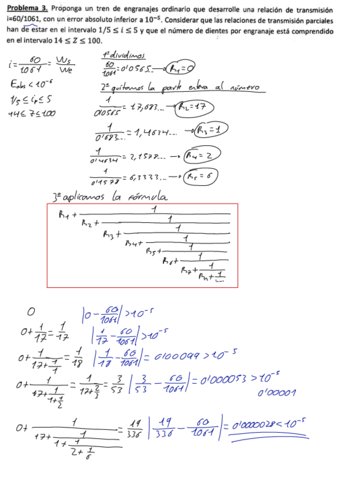 Problema 3. Proponga un tren de engranajes ordinario que desarrolle una relación de transmisión
i=60/1061, con un error absoluto inferior a 10⁻⁵. Considerar que las relaciones de transmisión parciales
han de estar en el intervalo 1/5 ≤ i ≤ 5 y que el número de dientes por engranaje está comprendido
en el intervalo 14 ≤ Z ≤ 100.
1º dividimos
i = 60/1061 = Ws/We
60/1061 = 0'0565... → R1 = 0
2º quitamos la parte entera al número
1/0'0565 = 17,683... → R2 = 17
1/0'683... = 1,4634... → R3 = 1
1/0'4634 = 2,1578... → R4 = 2
1/0'1578 = 6,3333... → R5 = 6
1/5 ≤ ip ≤ 5
14 ≤ Z ≤ 100
3º aplicamos la fórmula
R1 + 1
R2 + 1
R3 + 1
R4 + 1
R5 + 1
R6 + 1
R7 + 1
0 |0 - 60/1061| > 10⁻⁵
0 + 1/17 = 1/17 |1/17 - 60/1061| > 10⁻⁵
0 + 1/(17 + 1/1) = 1/18 |1/18 - 60/1061| = 0'00099 > 10⁻⁵
0 + 1/(17 + 1/(1 + 1/2)) = 1/(17 + 2/3) = 3/53 |3/53 - 60/1061| = 0'000053 > 10⁻⁵
0'00001
0 + 1/(17 + 1/(1 + 1/(2 + 1/6))) = 19/336 |19/336 - 60/1061| = 0'0000028 < 10⁻⁵